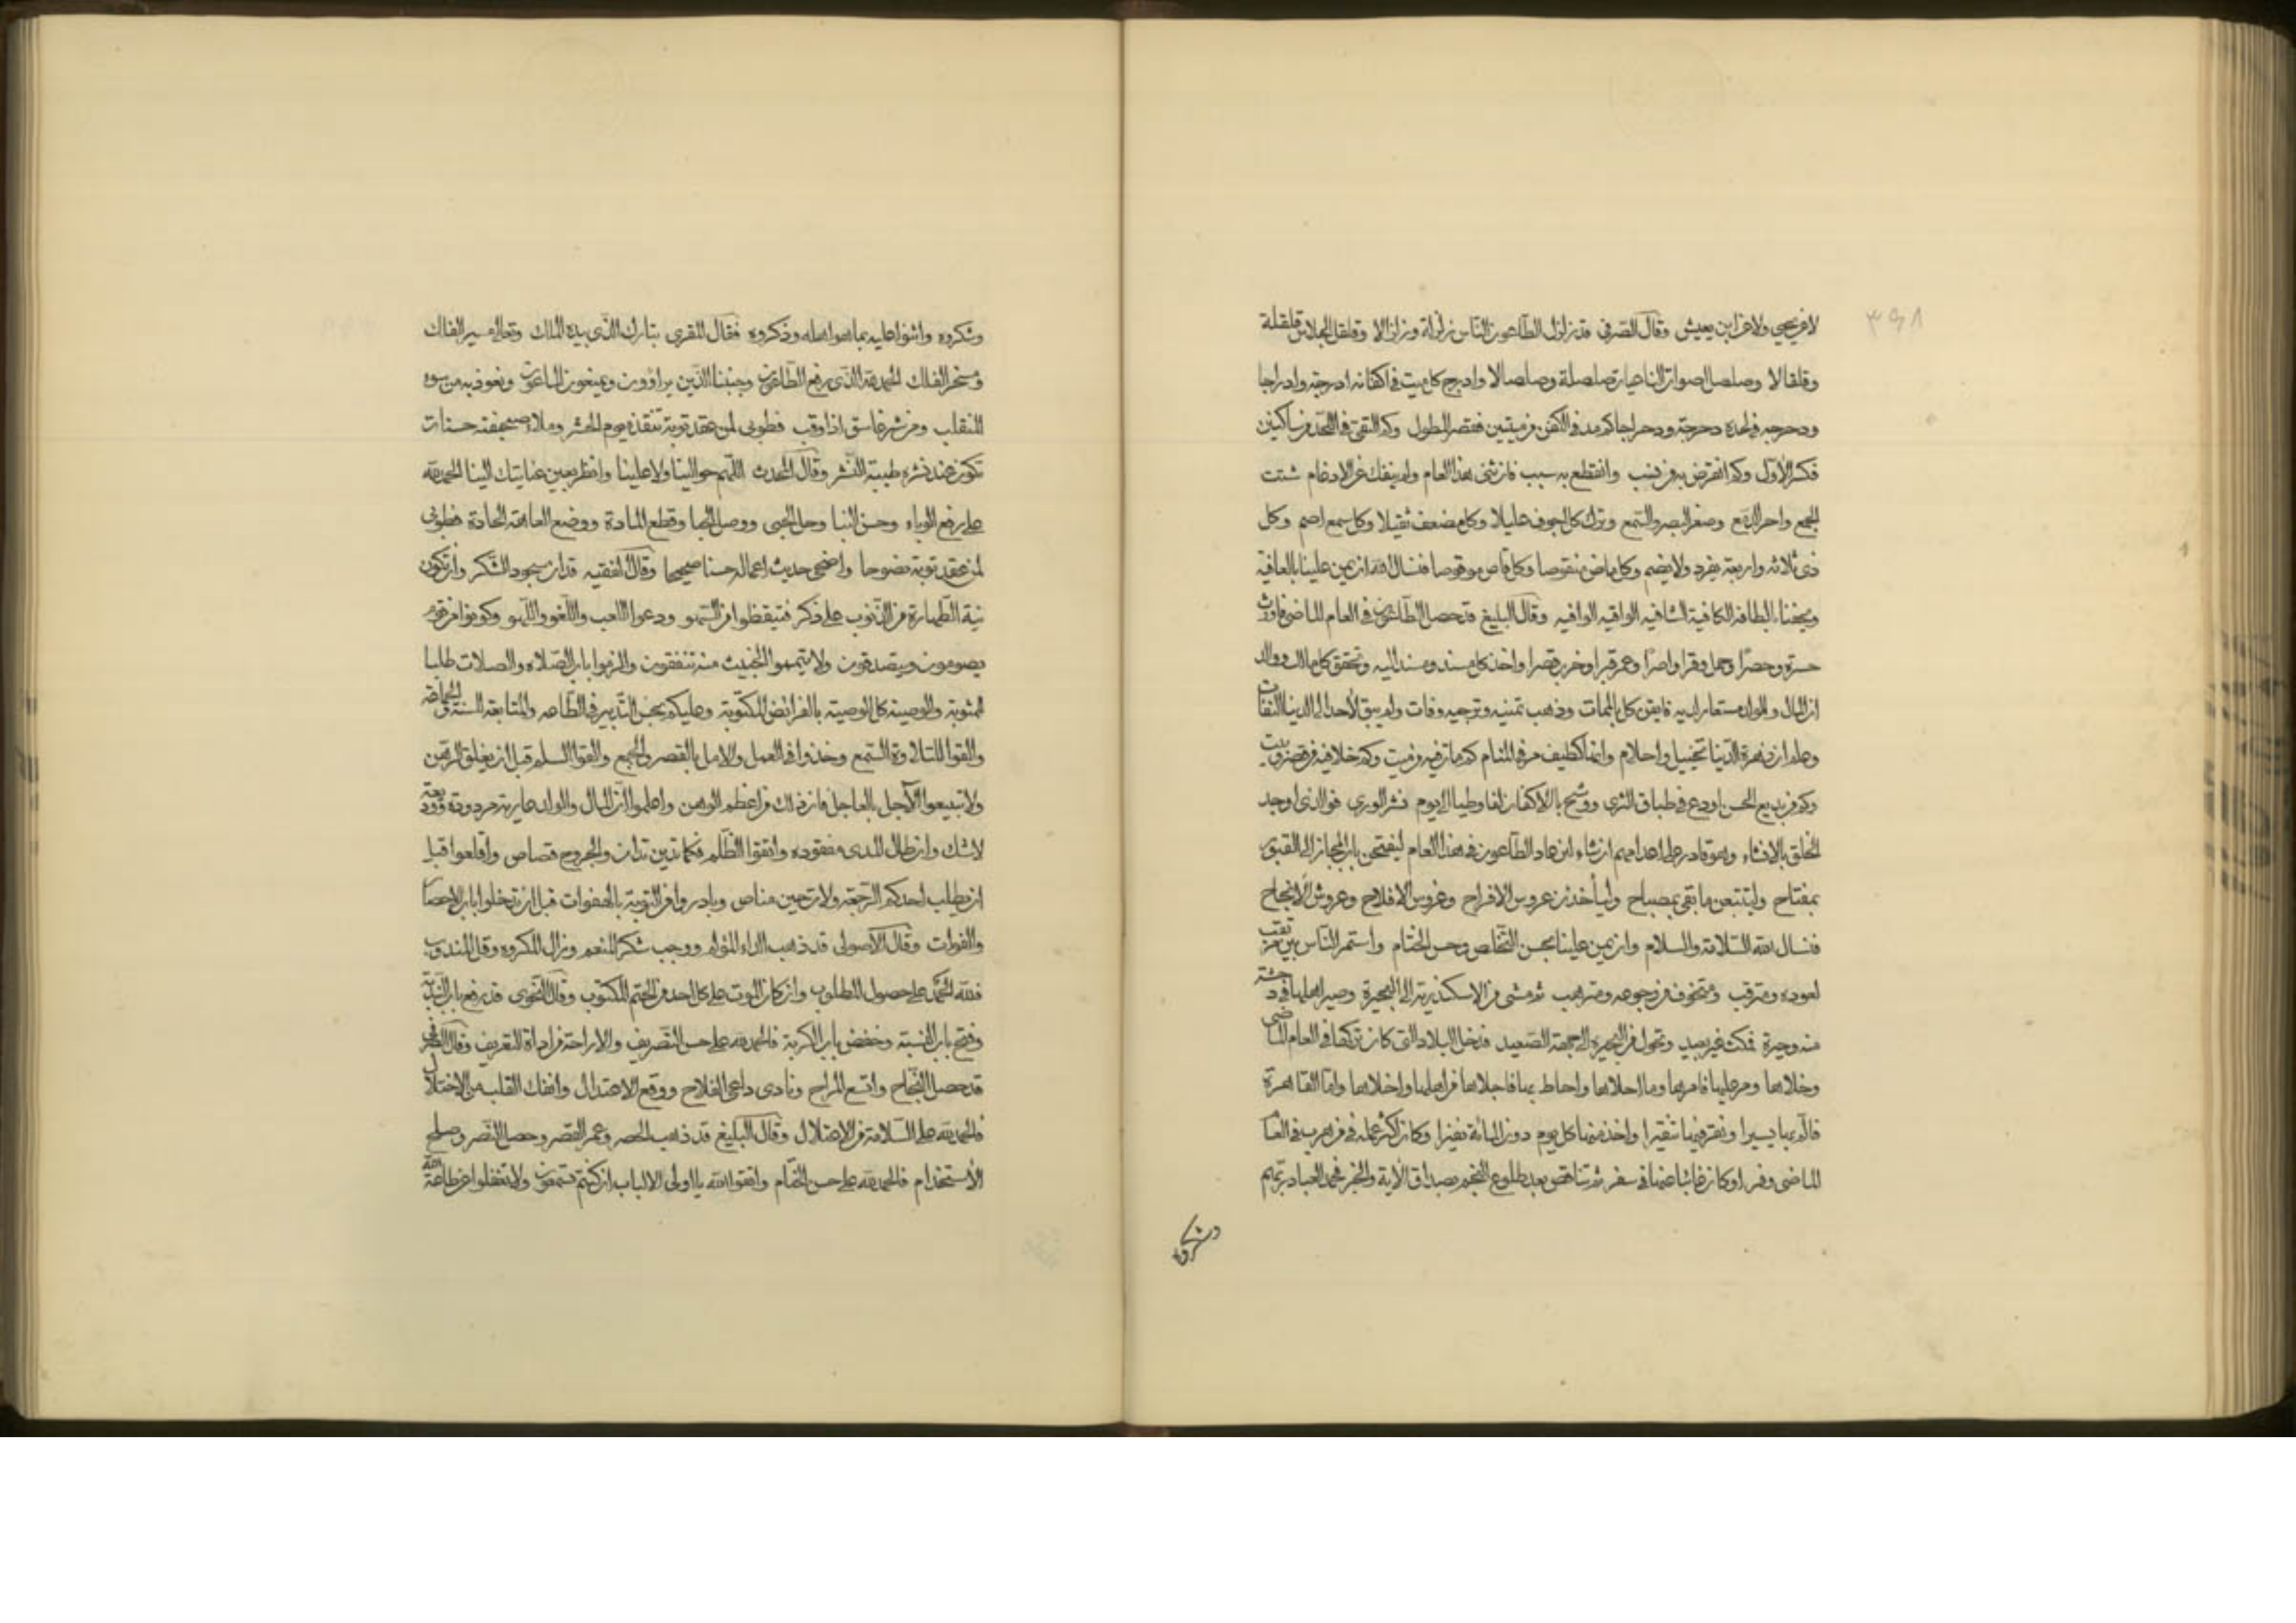 ٣٩٨
لا عن يحيى ولا عن ابن يعيش وقال الصرفى قد زلزل الطاعون الناس زلزلة وزلزالا وقلقل الجلاس قلقلة
وقلقالا وصلصل الصوارخ النائحات صلصلة وصلصالا وادرج كل ميت فى اكفانه ادرجة وادراجا
ودحرجه فى لحده دحرجة ودحراجا كم مد فى الكفن من ميتين فقصر المطول وكم التقى فى اللحد من ساكنين
فكسر الاول وكم انقرض به من نسب وانقطع به سبب فان ثنى هذا العام ولم ينفك عن الادغام شتت
الجمع واحر الدمع وصغر البصر والسمع وترك كل اجوف عليلا وكل مضعف ثقيلا وكل سمع اصم وكل
ذى ثلاثه واربعة مفرد ولا يضم وكل ماض منقوصا وكل قاص موقوصا فنسال الله ان يمن علينا بالعافية
ويحفنا بالطافه الكافية الشافيه الواقيه الوافيه وقال البليغ قد حصل الطاعون فى العام الماضى فاورث
حسرة وحصرا وحمل وقرا واصرا وعمر قبرا وخرب قصرا واخذ كل مسند ومسند اليه وتحقق كل مالك ووالد
ان المال والولد مستعار لديه فايقن كل بالممات وذهب تمنيه وترجيه وفات ولم يبق لاحد الى الدنيا التفات
وعلم ان زهرة الدنيا تخييل واحلام وانها كطيف مر فى المنام كم مات فيه من ميت وكم خلا فيه من قصر وبيت
وكم من بديع الحسن اودع فى طباق الثرى ووشح بالاكفان لفا وطيا الى يوم نشر الورى فوالذى اوجد
الخلق بالانشاء وهو قادر على اعدامهم ان شاء ان عاد الطاعون فى هذا العام ليفتحن باب المجاز الى القبور
بمفتاح وليتتبعن ما بقى بمصباح وليأخذن عروس الافراح وغروس الافلاح وعروش الانجاح
فنسال الله السلامة والسلام وان يمن علينا بحسن التخلص وحسن الختام واستمر الناس بين مرتقب
لعوده ومترقب ومتخوف من رجوعه ومترهب ثم مشى من الاسكندرية الى البحيرة وصير اهلها فى دهشة
منه وحيرة فمكث غير بعيد وتحول من البحيره الى جهة الصعيد فدخل البلاد التى كان تركها فى العام الماضى
وخلاها ومر عليها فامرها وما احلاها واحاط بها فاجلاها من اهلها واخلاها واما القاهرة
فالم بها يسيرا ونقر فيها نقيرا واخذ منها كل يوم دون المائة نفرا وكان اكثر عمله فى من هرب فى العام
الماضى وفر او كان غائبا عنها فى سفر ثم تناقص بعد طلوع النجم بصداق الاية والخبر فحمد العباد ربهم
وشكروه
وشكروه واثنوا عليه بما هو اهله وذكروه فقال المقرى تبارك الذى بيده الملك وتعالى مسير الفلك
ومسخر الفلك الحمد لله الذى رفع الطاعون وجنبنا الذين يراؤون ويمنعون الماعون ونعوذ به من سوء
المنقلب ومن شر غاسق اذا وقب فطوبى لمن عقد توبة تنقذه يوم الحشر وملا صحيفته حسنات
تكون عند نشره طيبة النشر وقال المحدث اللهم حوالينا ولا علينا وانظر بعين عنايتك الينا الحمد لله
على رفع الوباء وحسن النبا وحل الحبى ووصل الحما وقطع المادة ووضع العاهة الحادة فطوبى
لمن عقد توبة نصوحا واضحى حديث اعماله حسنا صحيحا وقال الفقيه قد ان سجود الشكر وان تكون
نية الطهارة من الذنوب على ذكر فتيقظوا من السهو ودعوا اللعب واللغو واللهو وكونوا من قوم
يصومون ويصدقون ولا يتيمموا الخبيث منه تنفقون والزموا باب الصلاه والصلات طلبا
للمثوبة والوصية كل الوصية بالفرائض المكتوبة وعليكم بحسن التدبير فى الطاعه والمتابعة السنة والجماعة
والقوا للتلاوة السمع وخذوا فى العمل والامل بالقصر والجمع والقوا السلم قبل ان يغلق الرهن
ولا تبيعوا الآجل بالعاجل فان ذلك من اعظم الوهن واعلموا ان المال والولد عارية مردودة ووديعة
لا شك وان طال المدى مفقوده واتقوا الظلم فكما تدين تدان والجروح قصاص واقلعوا قبل
ان يطلب احدكم الرجعة ولات حين مناص وبادروا من التوبة بالهفوات قبل ان تدخلوا باب الاحصار
والفوات وقال الاصولى قد ذهب الداء المؤلم ووجب شكر المنعم وزال المكروه وقل المندوب
فلله الحمد على حصول المطلوب وان كان الموت على كل احد من الحتم المكتوب وقال النحوى قد رفع باب الندبة
وفتح باب النسبة وخفض باب الكربة فالحمد لله على حسن التصريف والاراحة من اداة التعريف وقال الصرفى
قد حصل النجاح واتسع المراح ونادى داعى الفلاح ووقع الاعتدال وانفك القلب من الاختلال
فالحمد لله على السلامة من الاعتلال وقال البليغ قد ذهب الحصر وعمر القصر وحصل النصر وصلح
الاستخدام فالحمد لله على حسن الختام واتقوا الله يا اولى الالباب ان كنتم تسمعون ولا تغفلوا عن طاعة الله